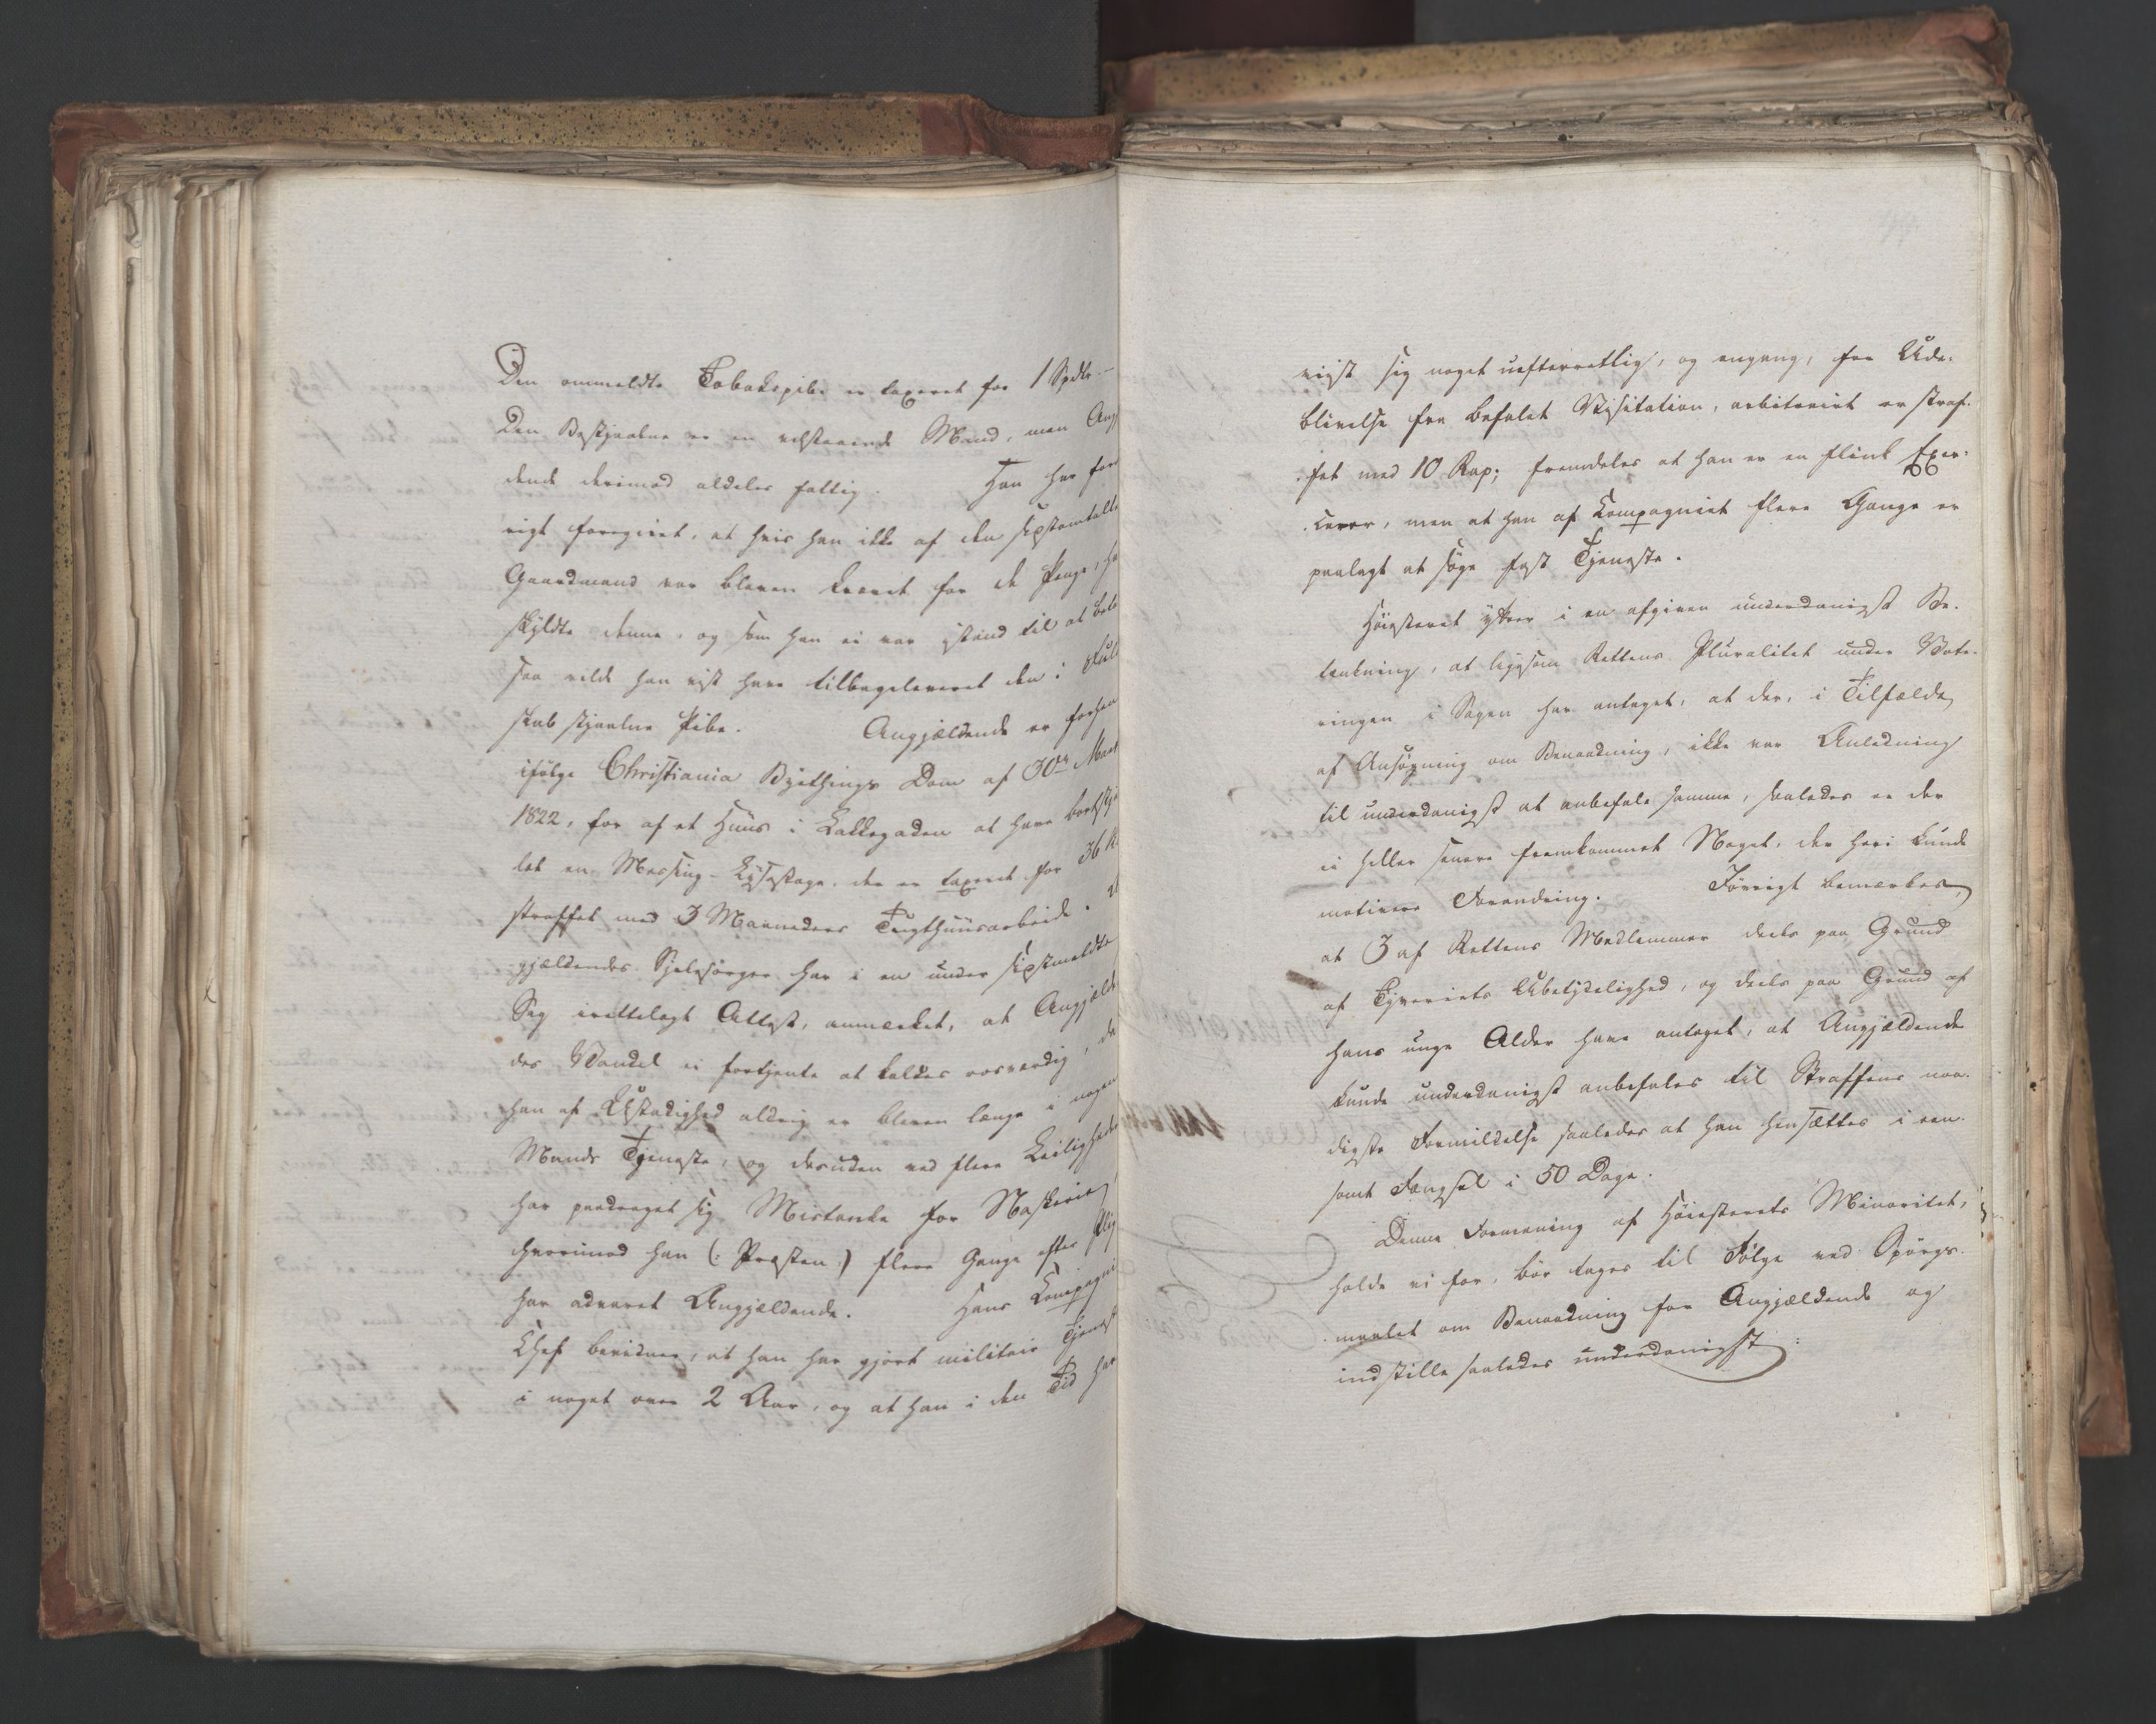 Den ommeldte Tobakspibe er taxeret for 1 Spdlr. –
Den Bestjaalne er en velstaaende Mand, men Ang
dende derimod aldeles fattig. Han har for
rigt foregivet, at hvis han ikke af den sidstomtalte
Gaardmand var bleven krævet for de Penge, ha
skyldte denne, og som han ei var istand til at beta
saa vilde han vist have tilbageleveret den i Fuld
skab stjaalne Pibe. Angjældende er forhen
ifølge Christiania Byethings Dom af 30te Mart
1822, for af et Huus i Lakkegaden at have bortstjaa
let en Messing-Lysestage, der er taxeret for 36 
straffet med 3 Maaneders Tugthuusarbeide.
gjældendes Sjelesørger har i en under sidstmeldte
Sag irettelagt Attest, anmærket, at Angjælden
des Vandel ei fortjente at kaldes rosværdig, da
han af Ustadighed aldrig er bleven længe i nogen
Mands Tjeneste, og desuden ved flere Leiligheder
har paadraget sig Mistanke for Naskerie,
hvorimod han (: Præsten :) flere Gange efter Plig
har advaret Angjældende. Hans Kompagni
Chef bevidner, at han har gjort militair Tjenest
i noget over 2 Aar, og at han i den Tid har
viist sig noget uefterrettelig, og engang, for Ude-
blivelse fra befalet Visitation, arbitrairt er straf-
fet med 10 Rap; fremdeles at han er en flink Exer-
cerer, men at han af Kompagniet flere Gange er
paalagt at søge fast Tjeneste.
Høiesteret yttrer i en afgiven underdanigst Be-
tænkning, at ligesom Rettens Pluralitet under Vote-
ringen i Sagen har antaget, at der, i Tilfælde
af Ansøgning om Benaadning, ikke var Anledning
til underdanigst at anbefale samme, saaledes er der
ei heller senere fremkommet Noget, der heri kunde
motivere Forandring. Iøvrigt bemærkes,
at 3 af Rettens Medlemmer deels paa Grund
af Tyveriets Ubetydelighed, og deels paa Grund af
hans unge Alder have antaget, at Angjældende
kunde underdanigst anbefales til Straffens naa-
digste Formildelse saaledes at han hensættes i een-
somt Fængsel i 50 Dage.
Denne Formening af Høiesterets Minoritet,
holde vi for, bør tages til Følge ved Spørgs-
maalet om Benaadning for Angjældende og
indstille saaledes underdanigst: